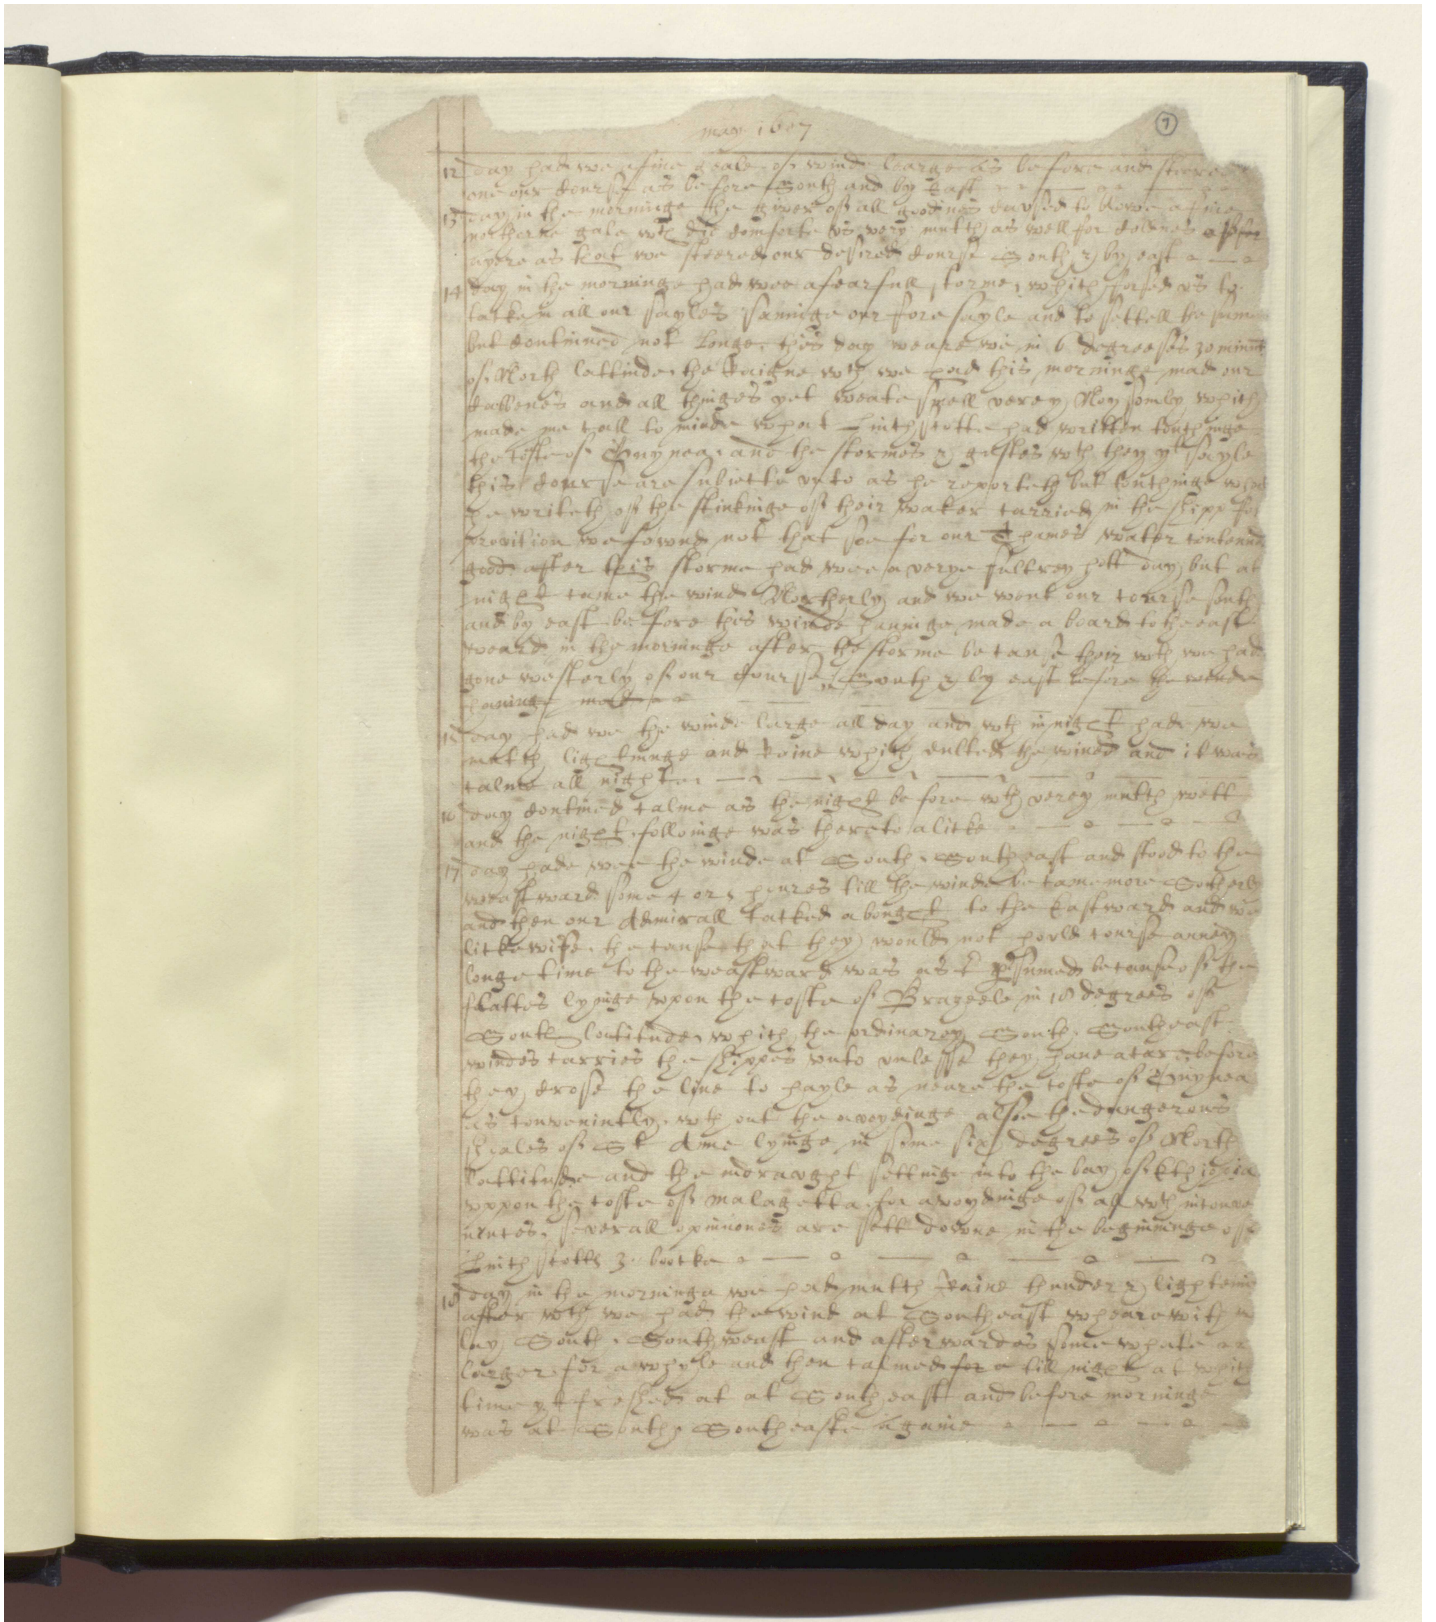 may 1607
7
12 day had we a fine gale of winde learge as before and steered
one our course as before South and by East
13 day in the morninge the giver of all good things caused to blowe a fine
northerne gale wch did comforte us very mutch as well for colenes of the
ayere as that we steered our desired course South & by east
14 day in the morninge had wee a fearfull storme, which forsed us to
take in all our sayles savinge our fore sayle and to settell the same
but continued not longe, this day weare we in 6 degreeses 30 minuts
of North lattitude, the Raigne wch we had this morninge made our
and all thinges yet weate smell verey Noysomly which
made me call to minde what Linschotte had written touchinge
the coste of Gynnea, and the stormes & gustes wch they yt sayle
this course are subiecte unto as he reporteth but touchinge what
he writeth of the stinkinge of their water carried in the shipp for
provition we fownd not that soe for our Thames water contenued
good, after this storme had wee a verye sultrey hott day, but at
night came the wind Northerly and we went our course south
and by east before this winde havinge made a board to the east
ward in the morninge after the storme because their wch we had
gone westerly of our course South & by east before the winde
havinge
15 day had we the winde large all day and wch in night had we
mutch lightninge and Raine which culled the winde and it was
calme all night
16 day contined calme as the night before wth verey mutch wett
and the night followinge was thereto alicke
17 day hade wee the winde at South, Southeast and stood to the
weastward some 4 or 5 houres till the winde became more Sotherly
and then our Admirall tacked abought to the Eastward and we
lickewise, the cause that they would not hould course anney
longe time to the weastward was as I presumed because of the
flattes lyinge upon the coste of Brazeele in 18 degrees of
South lattitude, which the ordinarey South, Southeast
windes carries the shippes unto unlesse they have a care before
they crose the line to hayle as neare the coste of Gynnea
as convenintly, wth out the avoydinge allsoe the dangerous
shoales of St Anne lyinge in some six degrees of North
Lattitude and the indraught settinge into the bay of Ethiopia
uppon the coste of Malagetta, for avoydinge of all wch inconve
nences, severall opiniones are sett downe in the beginninge of
Linschotts 3. boocke
18 day in the morninge we had mutch Raine thunder & lightninge
after wch we had the wind at Southeast wheare with we
lay South, Southweast and afterwardes somewhate
larger for a whyle and then calmed till night at which
time yt freshed at at Southeast and before morninge
was at South, Southeaste againe